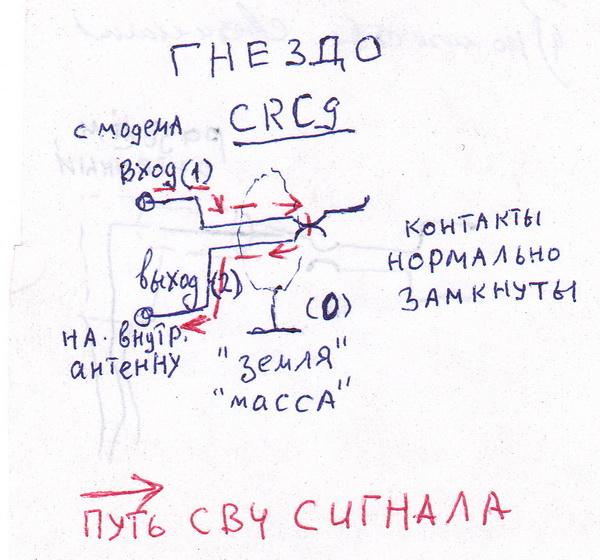 ГНЕЗДО
CRC9
с модема
вход (1)
контакты
нормально
замкнуты
выход (2)
(0)
на внутр.
антенну
"земля"
"масса"
путь СВЧ сигнала